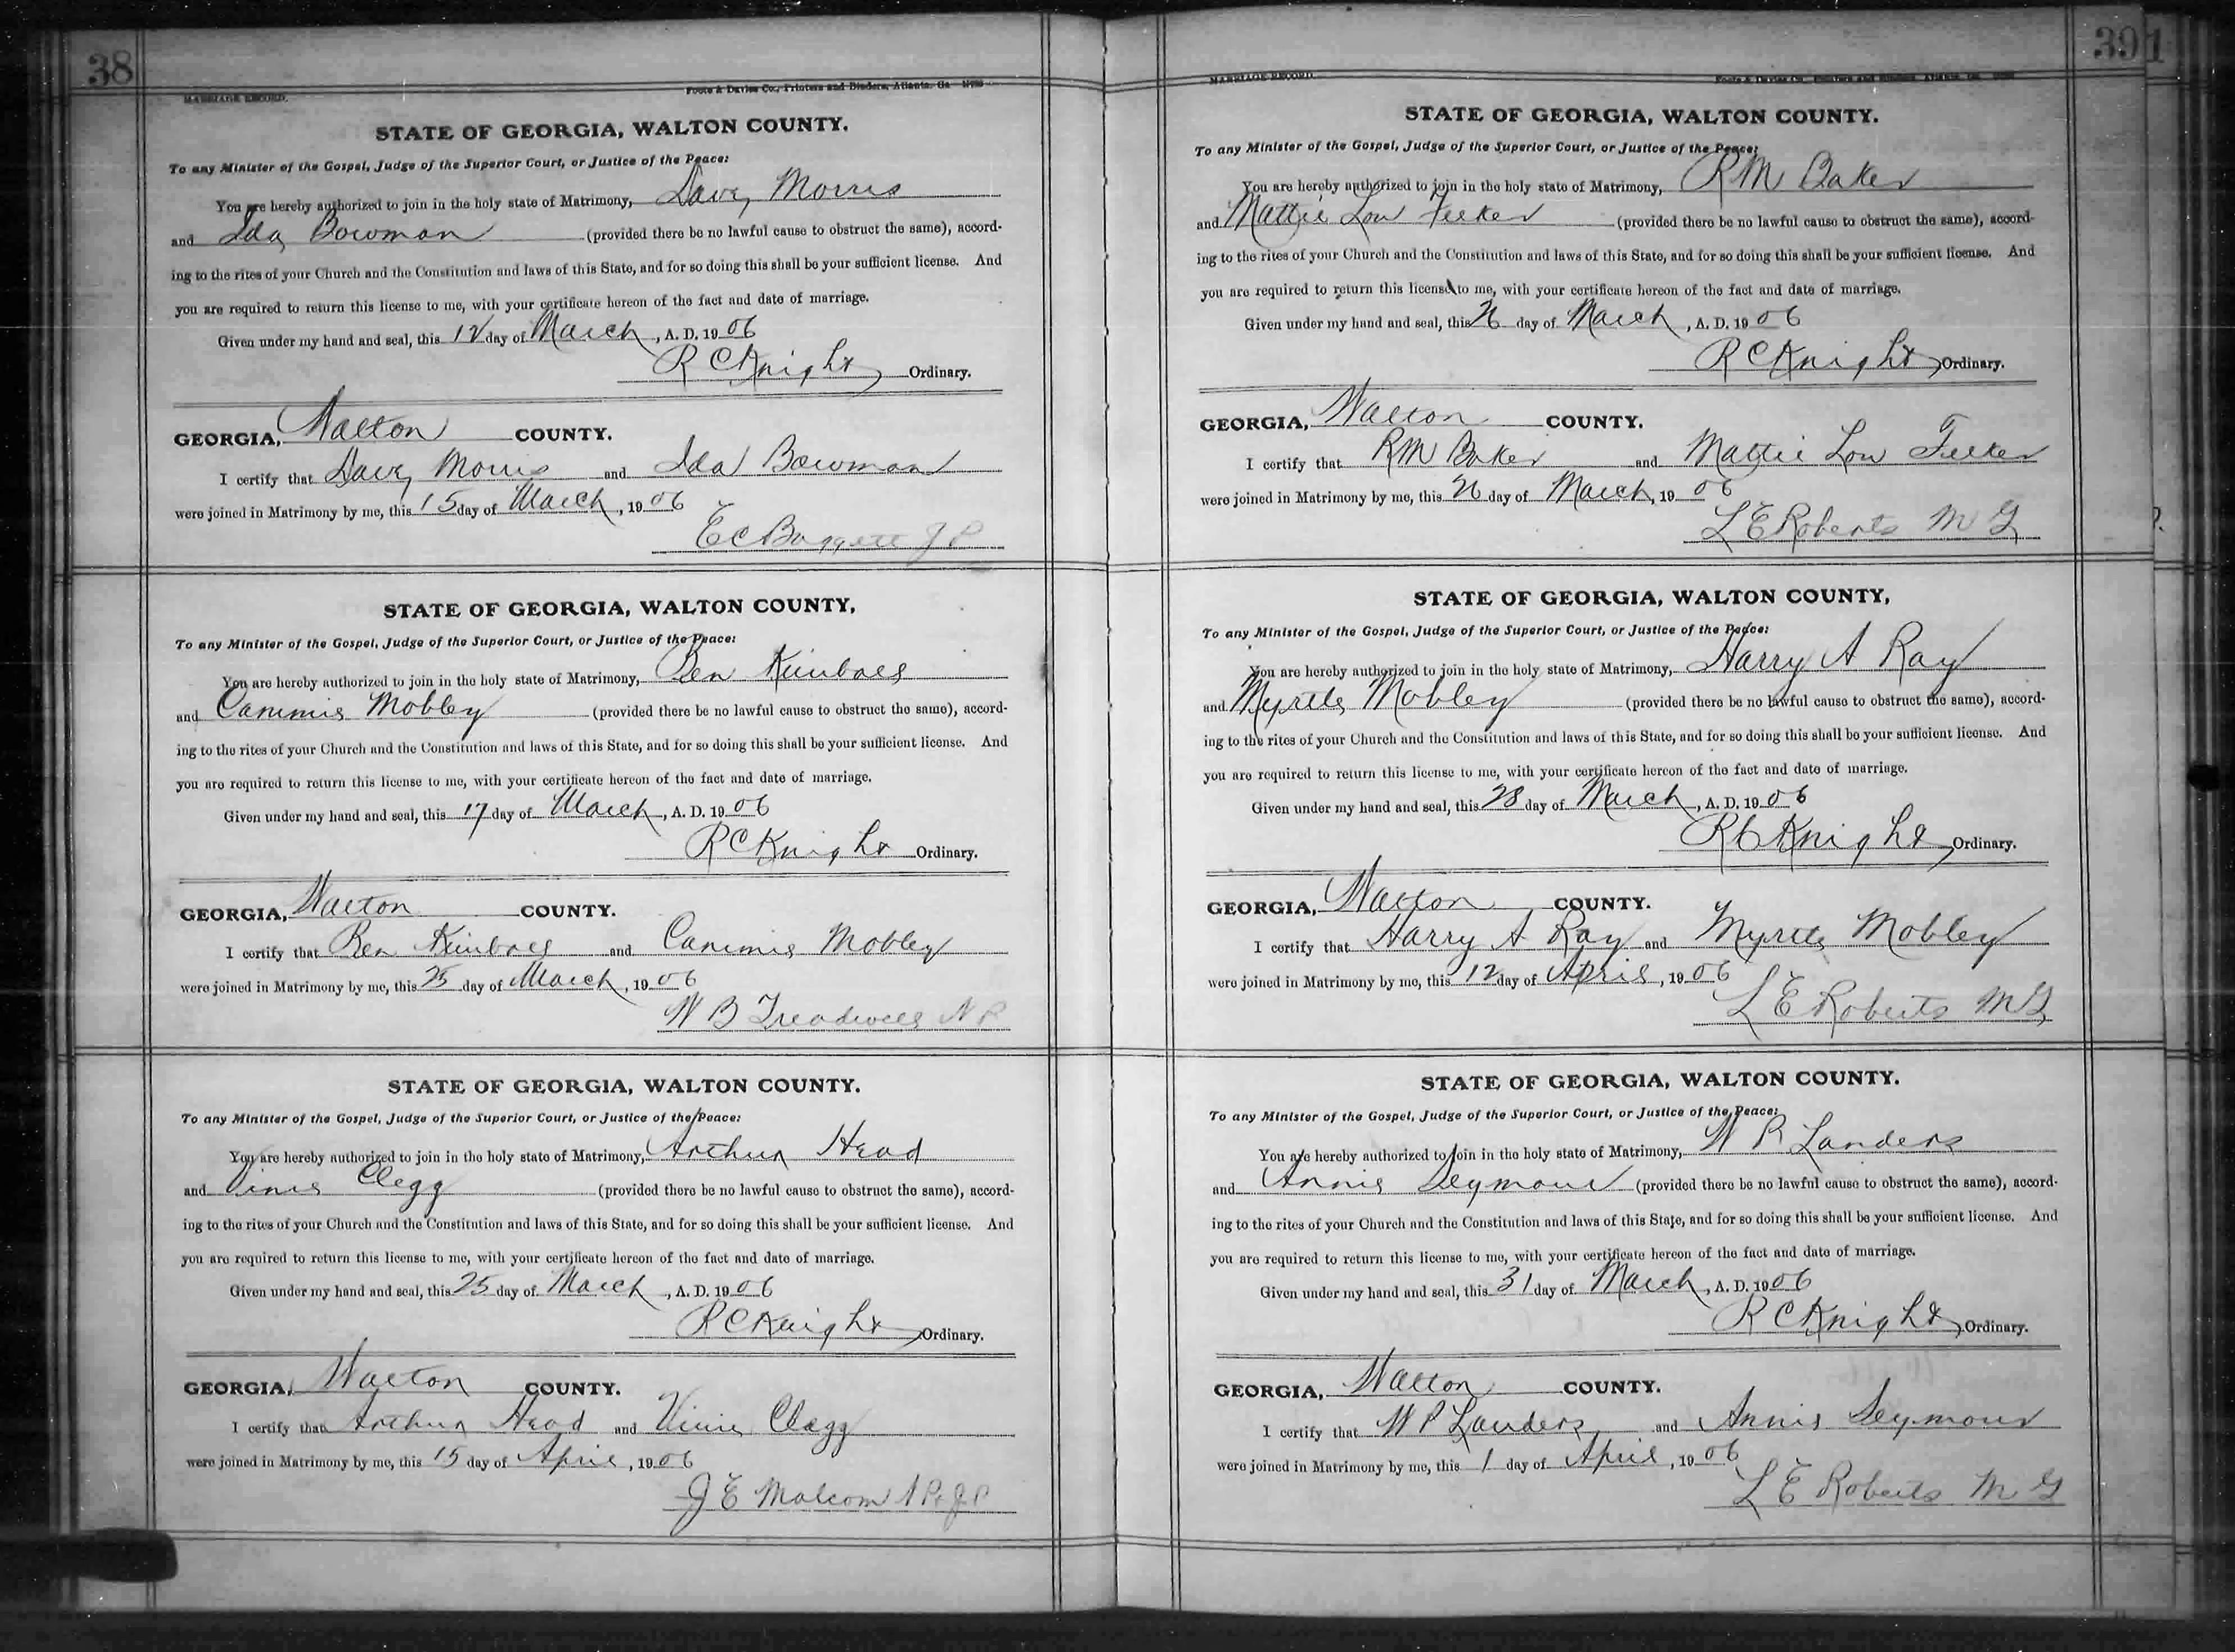 38
MARRIAGE RECORD.
Foote & Davies Co., Printers and Binders, Atlanta, Ga
STATE OF GEORGIA, WALTON COUNTY.
To any Minister of the Gospel, Judge of the Superior Court, or Justice of the Peace:
You are hereby authorized to join in the holy state of Matrimony, Dave Morris
and Ida Bowman (provided there be no lawful cause to obstruct the same), accord-
ing to the rites of your Church and the Constitution and laws of this State, and for so doing this shall be your sufficient license. And
you are required to return this license to me, with your certificate hereon of the fact and date of marriage.
Given under my hand and seal, this 12 day of March, A. D. 1906
R C Knight Ordinary.
GEORGIA, Walton COUNTY.
I certify that Dave Morris and Ida Bowman
were joined in Matrimony by me, this 15 day of March, 1906
E C Baggett J P
STATE OF GEORGIA, WALTON COUNTY,
To any Minister of the Gospel, Judge of the Superior Court, or Justice of the Peace:
You are hereby authorized to join in the holy state of Matrimony, Ben Kimball
and Cammie Mobley (provided there be no lawful cause to obstruct the same), accord-
ing to the rites of your Church and the Constitution and laws of this State, and for so doing this shall be your sufficient license. And
you are required to return this license to me, with your certificate hereon of the fact and date of marriage.
Given under my hand and seal, this 17 day of March, A. D. 1906
R C Knight Ordinary.
GEORGIA, Walton COUNTY.
I certify that Ben Kimball and Cammie Mobley
were joined in Matrimony by me, this 25 day of March, 1906
W B Treadwell N P
STATE OF GEORGIA, WALTON COUNTY.
To any Minister of the Gospel, Judge of the Superior Court, or Justice of the Peace:
You are hereby authorized to join in the holy state of Matrimony, Arthur Head
and Vinie Clegg (provided there be no lawful cause to obstruct the same), accord-
ing to the rites of your Church and the Constitution and laws of this State, and for so doing this shall be your sufficient license. And
you are required to return this license to me, with your certificate hereon of the fact and date of marriage.
Given under my hand and seal, this 25 day of March, A. D. 1906
R C Knight Ordinary.
GEORGIA, Walton COUNTY.
I certify that Arthur Head and Vinie Clegg
were joined in Matrimony by me, this 15 day of April, 1906
J E Malcom N P & J P
39
MARRIAGE RECORD.
STATE OF GEORGIA, WALTON COUNTY.
To any Minister of the Gospel, Judge of the Superior Court, or Justice of the Peace:
You are hereby authorized to join in the holy state of Matrimony, R M Baker
and Mattie Lou Felker (provided there be no lawful cause to obstruct the same), accord-
ing to the rites of your Church and the Constitution and laws of this State, and for so doing this shall be your sufficient license. And
you are required to return this license to me, with your certificate hereon of the fact and date of marriage.
Given under my hand and seal, this 26 day of March, A. D. 1906
R C Knight Ordinary.
GEORGIA, Walton COUNTY.
I certify that R M Baker and Mattie Lou Felker
were joined in Matrimony by me, this 26 day of March, 1906
L E Roberts M G
STATE OF GEORGIA, WALTON COUNTY,
To any Minister of the Gospel, Judge of the Superior Court, or Justice of the Peace:
You are hereby authorized to join in the holy state of Matrimony, Harry A Ray
and Myrtle Mobley (provided there be no lawful cause to obstruct the same), accord-
ing to the rites of your Church and the Constitution and laws of this State, and for so doing this shall be your sufficient license. And
you are required to return this license to me, with your certificate hereon of the fact and date of marriage.
Given under my hand and seal, this 28 day of March, A. D. 1906
R C Knight Ordinary.
GEORGIA, Walton COUNTY.
I certify that Harry A Ray and Myrtle Mobley
were joined in Matrimony by me, this 12 day of April, 1906
L E Roberts M G
STATE OF GEORGIA, WALTON COUNTY.
To any Minister of the Gospel, Judge of the Superior Court, or Justice of the Peace:
You are hereby authorized to join in the holy state of Matrimony, W P Landers
and Annie Seymour (provided there be no lawful cause to obstruct the same), accord-
ing to the rites of your Church and the Constitution and laws of this State, and for so doing this shall be your sufficient license. And
you are required to return this license to me, with your certificate hereon of the fact and date of marriage.
Given under my hand and seal, this 31 day of March, A. D. 1906
R C Knight Ordinary.
GEORGIA, Walton COUNTY.
I certify that W P Landers and Annie Seymour
were joined in Matrimony by me, this 1 day of April, 1906
L E Roberts M G